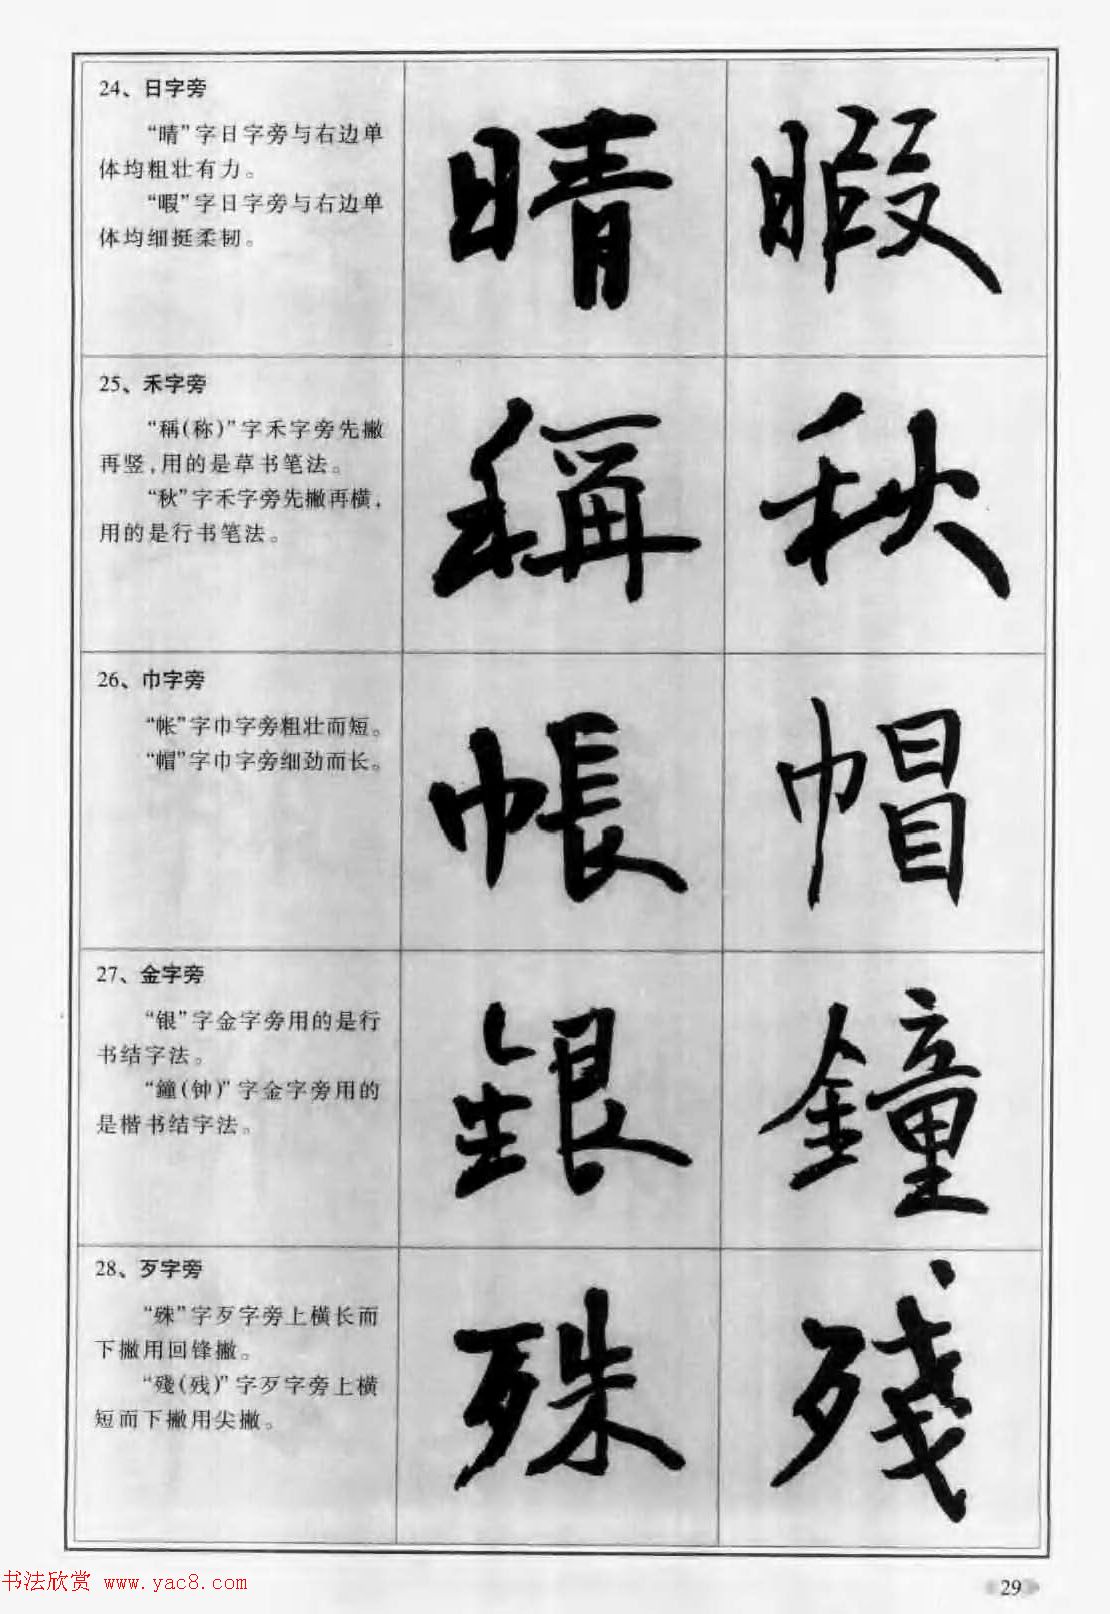 24、日字旁
“晴”字日字旁与右边单
体均粗壮有力。
“暇”字日字旁与右边单
体均细挺柔韧。
晴 暇
25、禾字旁
“稱(称)”字禾字旁先撇
再竖,用的是草书笔法。
“秋”字禾字旁先撇再横,
用的是行书笔法。
稱 秋
26、巾字旁
“帐”字巾字旁粗壮而短。
“帽”字巾字旁细劲而长。
帳 帽
27、金字旁
“银”字金字旁用的是行
书结字法。
“鐘(钟)”字金字旁用的
是楷书结字法。
銀 鐘
28、歹字旁
“殊”字歹字旁上横长而
下撇用回锋撇。
“殘(残)”字歹字旁上横
短而下撇用尖撇。
殊 殘
书法欣赏 www.yac8.com
29